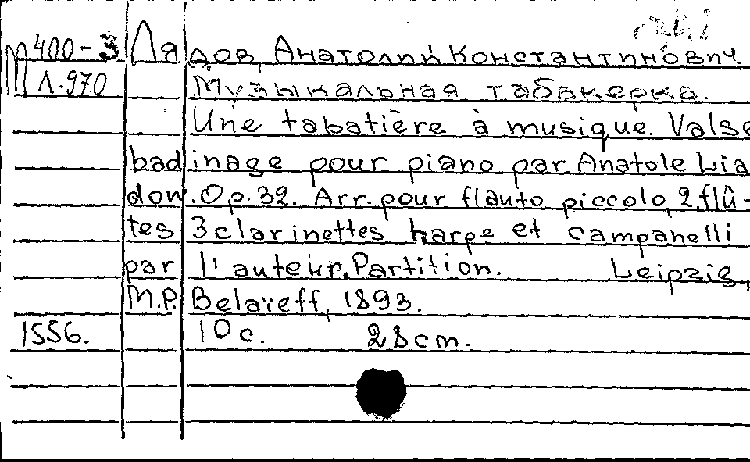 М 400-3 Лядов, Анатолий Константинович
Л.970 Музыкальная табакерка.
Une tabatière à musique. Valse
badinage pour piano par Anatole Lia
dow. Op. 32. Arr. pour flauto piccolo, 2 flû-
tes 3 clarinettes harpe et campanelli
par l'auteur. Partition. Leipzig,
M.P. Belaïeff, 1893.
1556. 10 с. 28 cm.